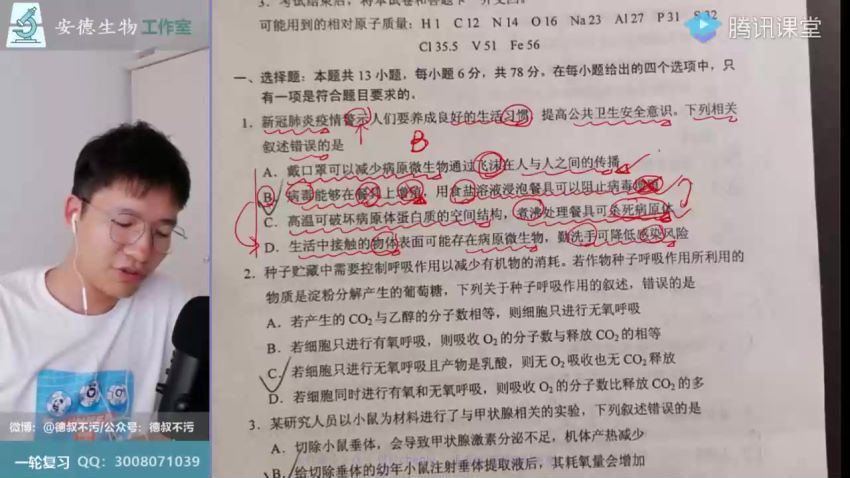 安德生物 工作室
腾讯课堂
3. 考试结束后，将本试卷和答题卡一并交回。
可能用到的相对原子质量：H 1 C 12 N 14 O 16 Na 23 Al 27 P 31 S 32
Cl 35.5 V 51 Fe 56
一、选择题：本题共 13 小题，每小题 6 分，共 78 分。在每小题给出的四个选项中，只
有一项是符合题目要求的。
1. 新冠肺炎疫情警示人们要养成良好的生活习惯 提高公共卫生安全意识。下列相关
叙述错误的是
B
A. 戴口罩可以减少病原微生物通过飞沫在人与人之间的传播
B. 病毒能够在餐具上增殖，用食盐溶液浸泡餐具可以阻止病毒增殖
C. 高温可破坏病原体蛋白质的空间结构，煮沸处理餐具可杀死病原体
D. 生活中接触的物体表面可能存在病原微生物，勤洗手可降低感染风险
2. 种子贮藏中需要控制呼吸作用以减少有机物的消耗。若作物种子呼吸作用所利用的
物质是淀粉分解产生的葡萄糖，下列关于种子呼吸作用的叙述，错误的是
A. 若产生的 CO2 与乙醇的分子数相等，则细胞只进行无氧呼吸
B. 若细胞只进行有氧呼吸，则吸收 O2 的分子数与释放 CO2 的相等
C. 若细胞只进行无氧呼吸且产物是乳酸，则无 O2 吸收也无 CO2 释放
D. 若细胞同时进行有氧和无氧呼吸，则吸收 O2 的分子数比释放 CO2 的多
3. 某研究人员以小鼠为材料进行了与甲状腺相关的实验，下列叙述错误的是
A. 切除小鼠垂体，会导致甲状腺激素分泌不足，机体产热减少
B. 给切除垂体的幼年小鼠注射垂体提取液后，其耗氧量会增加
微博：@德叔不污/公众号：德叔不污
一轮复习 QQ：3008071039